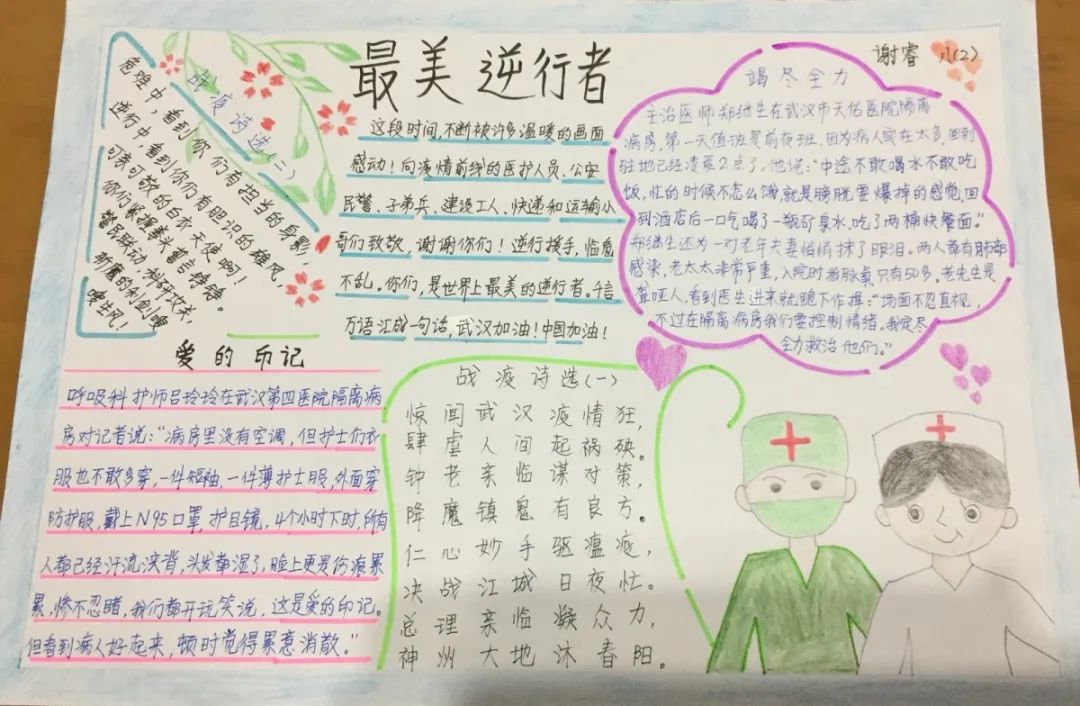 最美逆行者
谢睿 八(2)
战疫诗选(二)
危难中,看到你们有担当的身影,
逆行中,看到你们有胆识的雄风,
可亲可敬的白衣天使啊!
你们紧握拳头誓言铮铮。
警民联动,科研攻关,
斩魔的利剑嗖
嗖生风!
这段时间,不断被许多温暖的画面
感动!向疫情前线的医护人员、公安
民警、子弟兵、建设工人、快递和运输小
哥们致敬,谢谢你们!逆行援手,临危
不乱。你们,是世界上最美的逆行者。千言
万语汇成一句话,武汉加油!中国加油!
竭尽全力
主治医师郑继生在武汉市天佑医院隔离
病房,第一天值班是前夜班,因为病人实在太多,回到
驻地已经凌晨2点了。他说:“中途不敢喝水不敢吃
饭,忙的时候不怎么饿,就是膀胱要爆掉的感觉,回
到酒店后一口气喝了一瓶矿泉水,吃了两桶快餐面。”
郑继生还为一对老年夫妻悄悄抹了眼泪。两人都有肺部
感染,老太太非常严重,入院时指脉氧只有50多。老先生是
聋哑人,看到医生进来就跪下作揖:“场面不忍直视,
不过在隔离病房我们要控制情绪。我定尽
全力救治他们。”
爱的印记
呼吸科护师吕玲玲在武汉第四医院隔离病
房对记者说:“病房里没有空调,但护士们衣
服也不敢多穿,一件短袖,一件薄护士服,外面穿
防护服,戴上N95口罩,护目镜,4个小时下时,所有
人都已经汗流浃背,头发都湿了,脸上更是伤痕累
累,惨不忍睹,我们都开玩笑说,这是爱的印记。
但看到病人好起来,顿时觉得累意消散。”
战疫诗选(一)
惊闻武汉疫情狂,
肆虐人间起祸殃。
钟老亲临谋对策,
降魔镇鬼有良方。
仁心妙手驱瘟疫,
决战江城日夜忙。
总理亲临凝众力,
神州大地沐春阳。